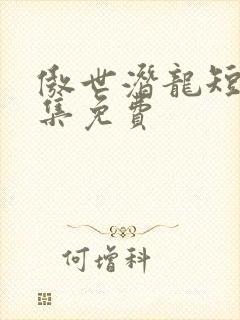 傲世潛龍短
集免費
何增科